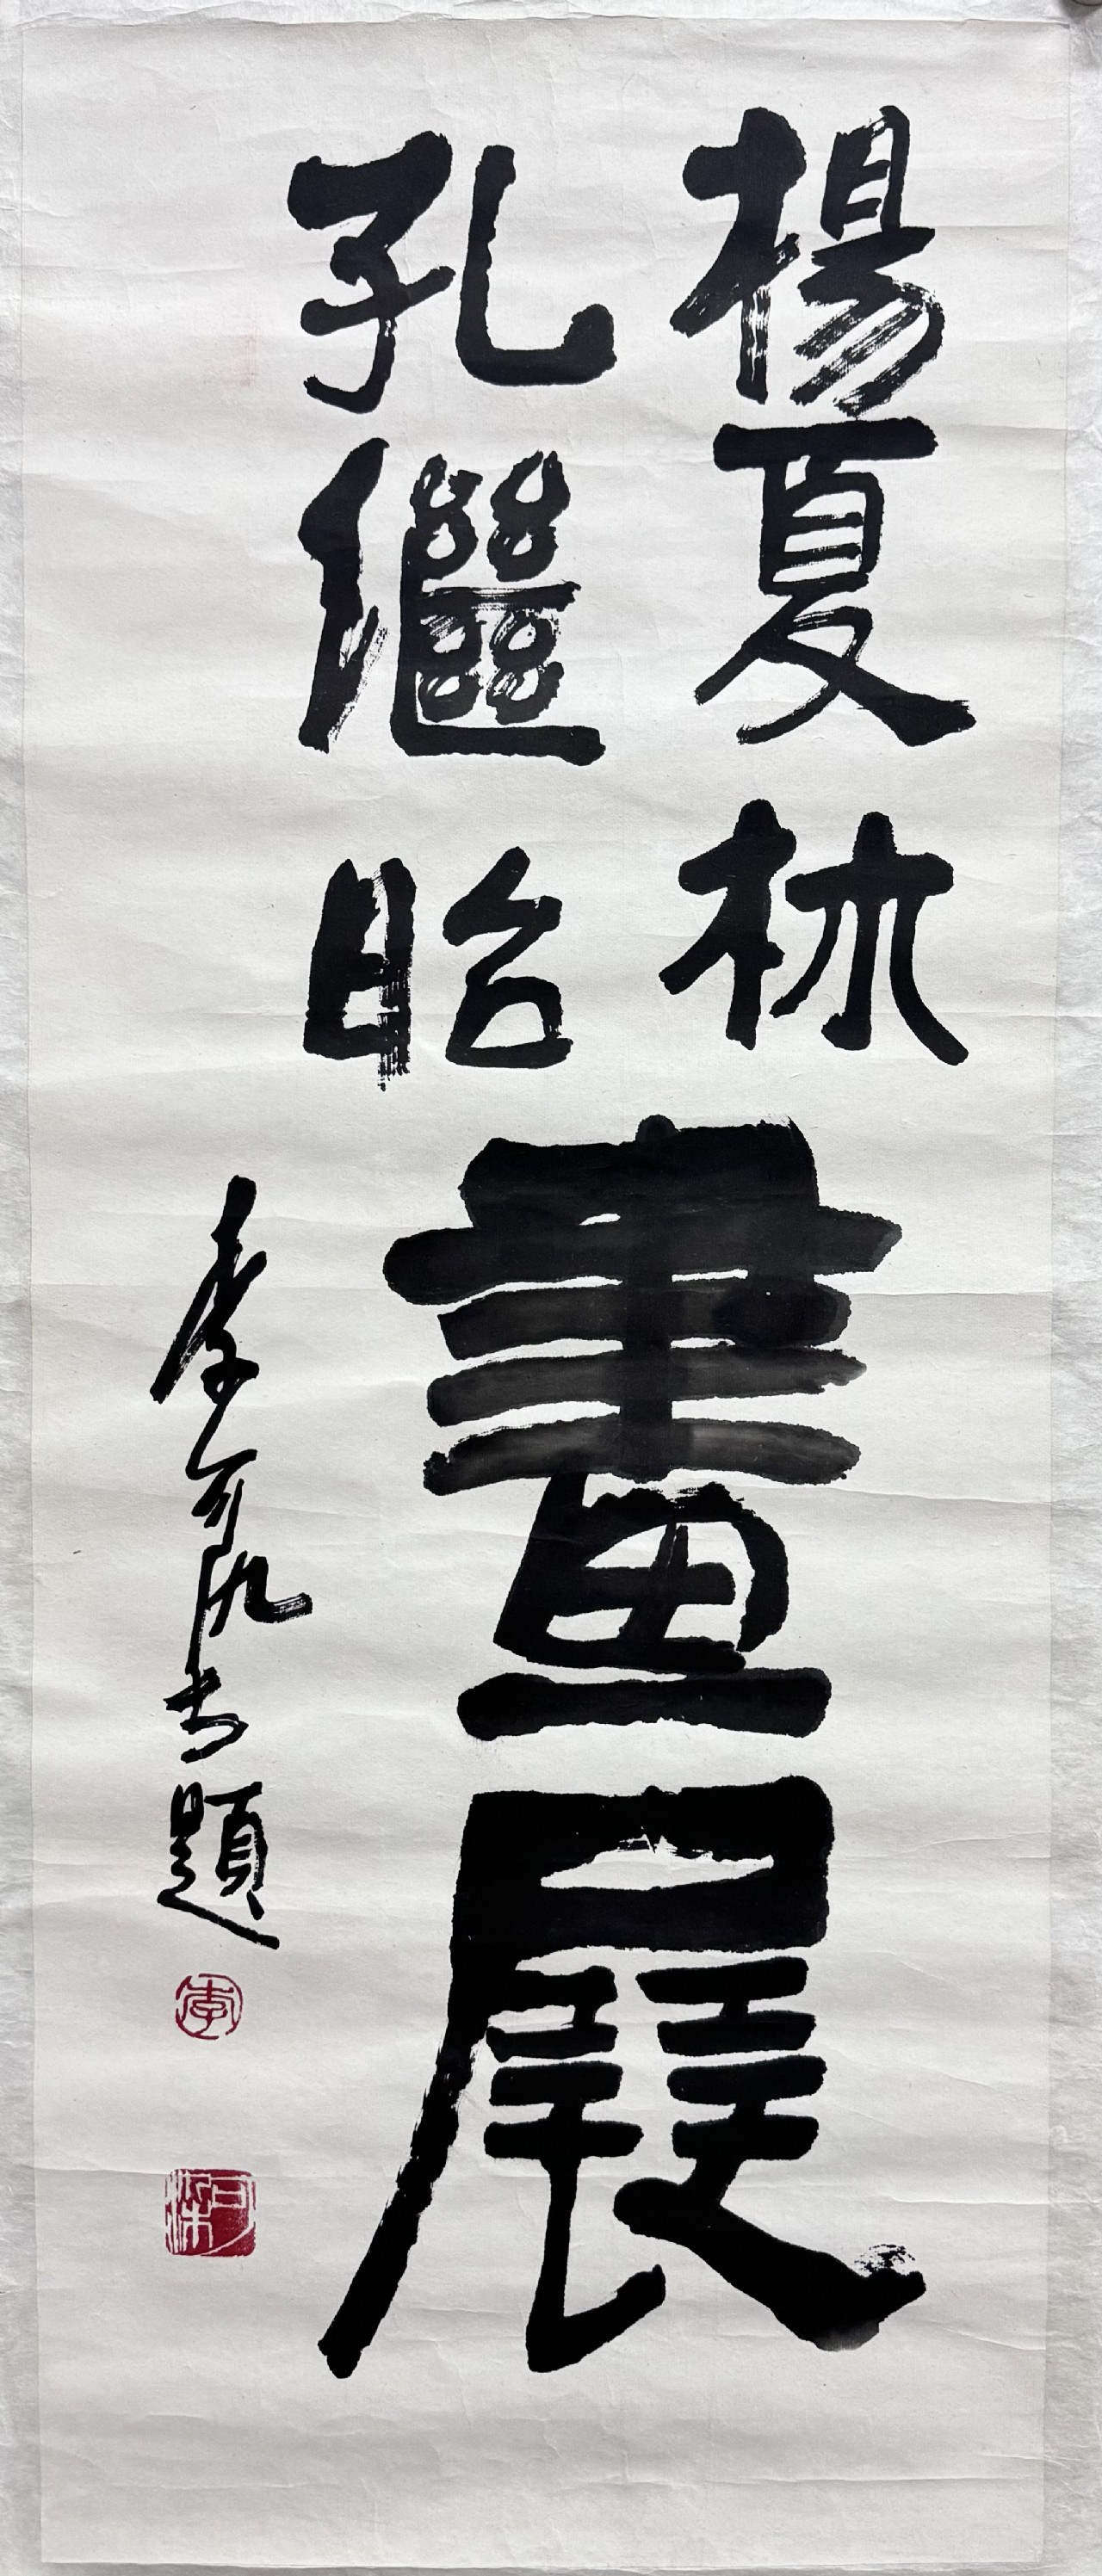 楊夏林
孔繼昭
畫展
李可染題
李
可染